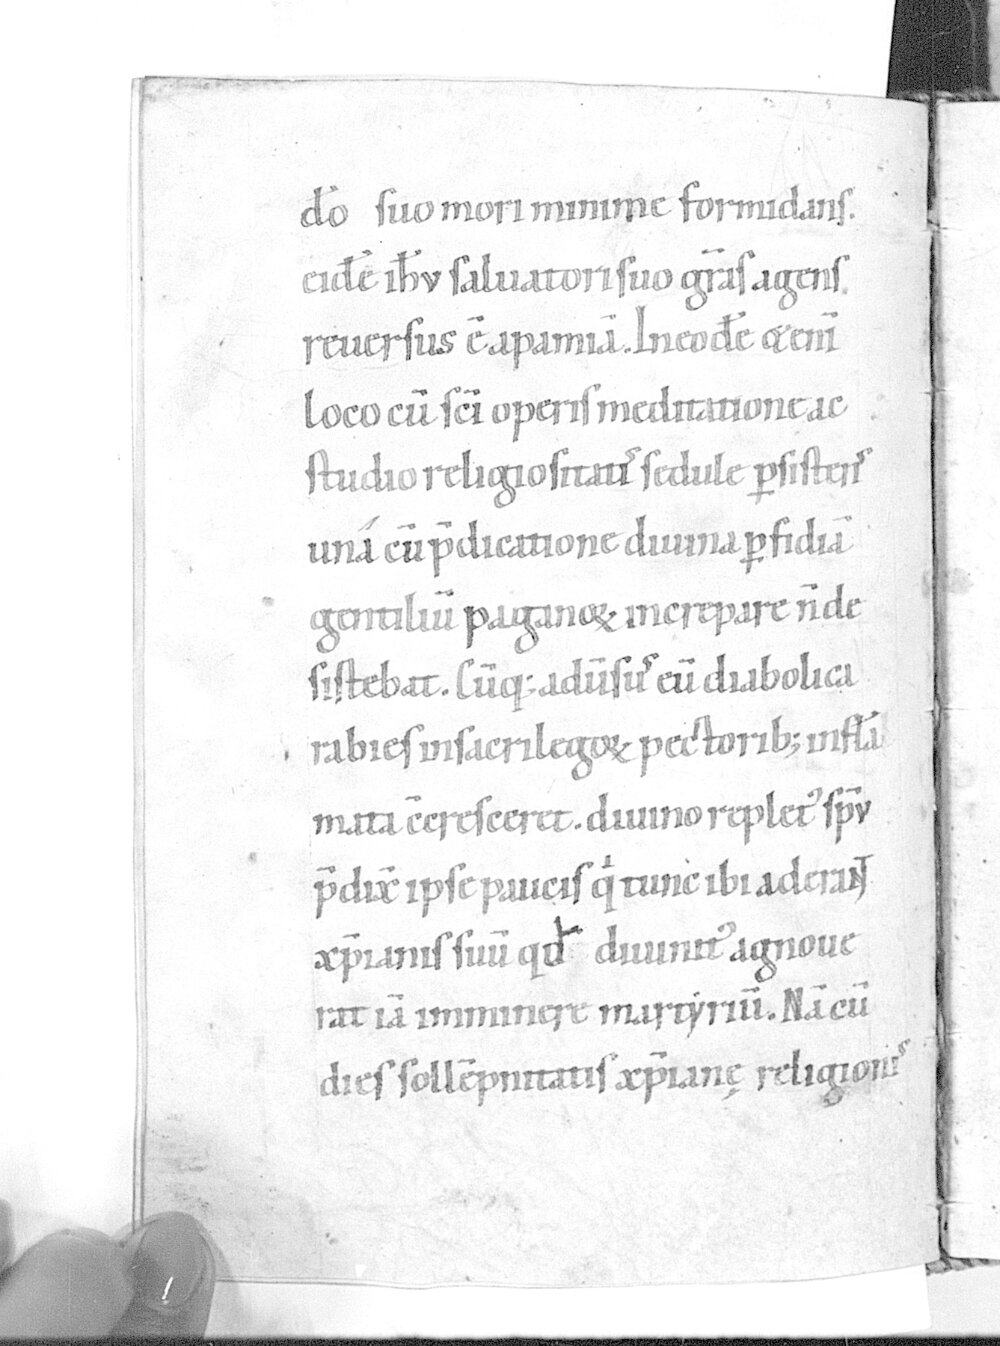 dō suo mori minime formidans.
eidē ihū saluatori suo gr̄as agens.
reuersus ē apamiā. In eodē &enī
loco cū sc̄i operis meditatione ac
studio religiositatis sedule ꝑsistens
una cū p̄dicatione diuina ꝑfidiā
gentiliū paganoꝝ increpare n̄ de
sistebat. Cūq; aduīsus eū diabolica
rabies in sacrilegoꝝ pectorib; inflā
mata c̄cresceret. diuino replet᾽ sp̄u
p̄dix̄ ipse paucis q̇ tunc ibi aderant
xp̄ianis suū qd̄ diuinit᾽ agnoue
rat iā imminere martẏriū. Nā cū
dies sollēpnitatis xp̄ianę religionis